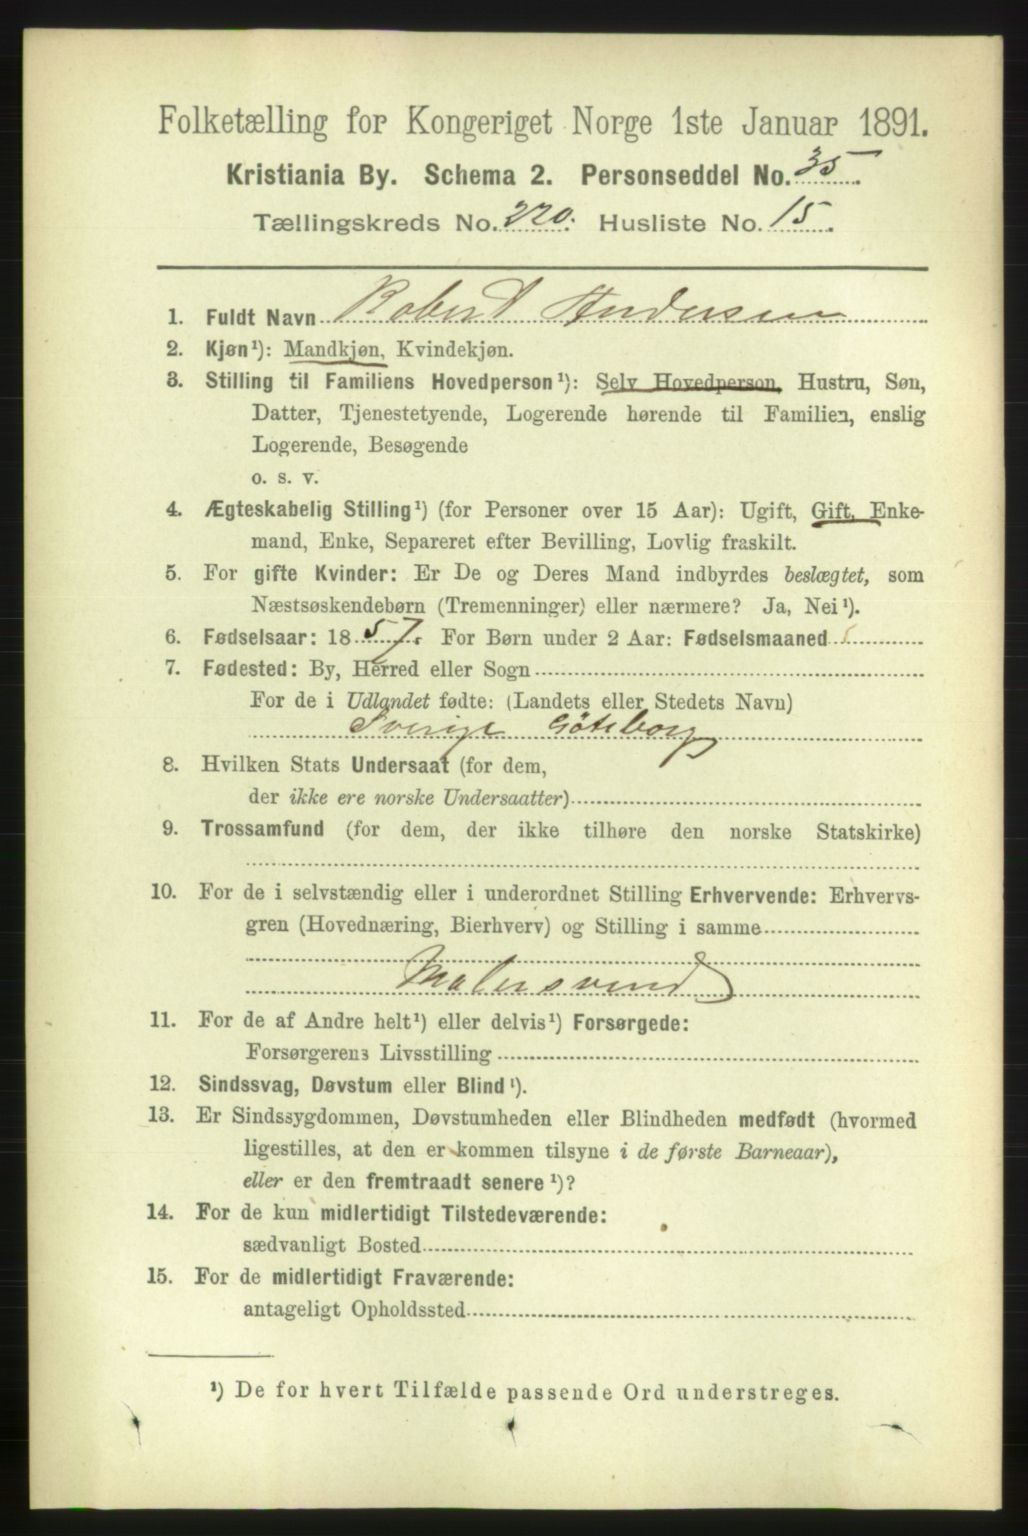 Folketælling for Kongeriget Norge 1ste Januar 1891.
Kristiania By. Schema 2. Personseddel No. 35.
Tællingskreds No. 220. Husliste No. 15.
1. Fuldt Navn Robert Andersen
2. Kjøn¹): Mandkjøn, Kvindekjøn.
3. Stilling til Familiens Hovedperson¹): Selv Hovedperson, Hustru, Søn,
Datter, Tjenestetyende, Logerende hørende til Familien, enslig
Logerende, Besøgende
o. s. v.
4. Ægteskabelig Stilling¹) (for Personer over 15 Aar): Ugift, Gift, Enke-
mand, Enke, Separeret efter Bevilling, Lovlig fraskilt.
5. For gifte Kvinder: Er De og Deres Mand indbyrdes beslægtet, som
Næstsøskendebørn (Tremenninger) eller nærmere? Ja, Nei¹).
6. Fødselsaar: 1857. For Børn under 2 Aar: Fødselsmaaned
7. Fødested: By, Herred eller Sogn
For de i Udlandet fødte: (Landets eller Stedets Navn)
Sverige Göteborg
8. Hvilken Stats Undersaat (for dem,
der ikke ere norske Undersaatter)
9. Trossamfund (for dem, der ikke tilhøre den norske Statskirke)
10. For de i selvstændig eller i underordnet Stilling Erhvervende: Erhvervs-
gren (Hovednæring, Bierhverv) og Stilling i samme
Malersvend
11. For de af Andre helt¹) eller delvis¹) Forsørgede:
Forsørgerens Livsstilling
12. Sindssvag, Døvstum eller Blind¹).
13. Er Sindssygdommen, Døvstumheden eller Blindheden medfødt (hvormed
ligestilles, at den er kommen tilsyne i de første Barneaar),
eller er den fremtraadt senere¹)?
14. For de kun midlertidigt Tilstedeværende:
sædvanligt Bosted
15. For de midlertidigt Fraværende:
antageligt Opholdssted
¹) De for hvert Tilfælde passende Ord understreges.